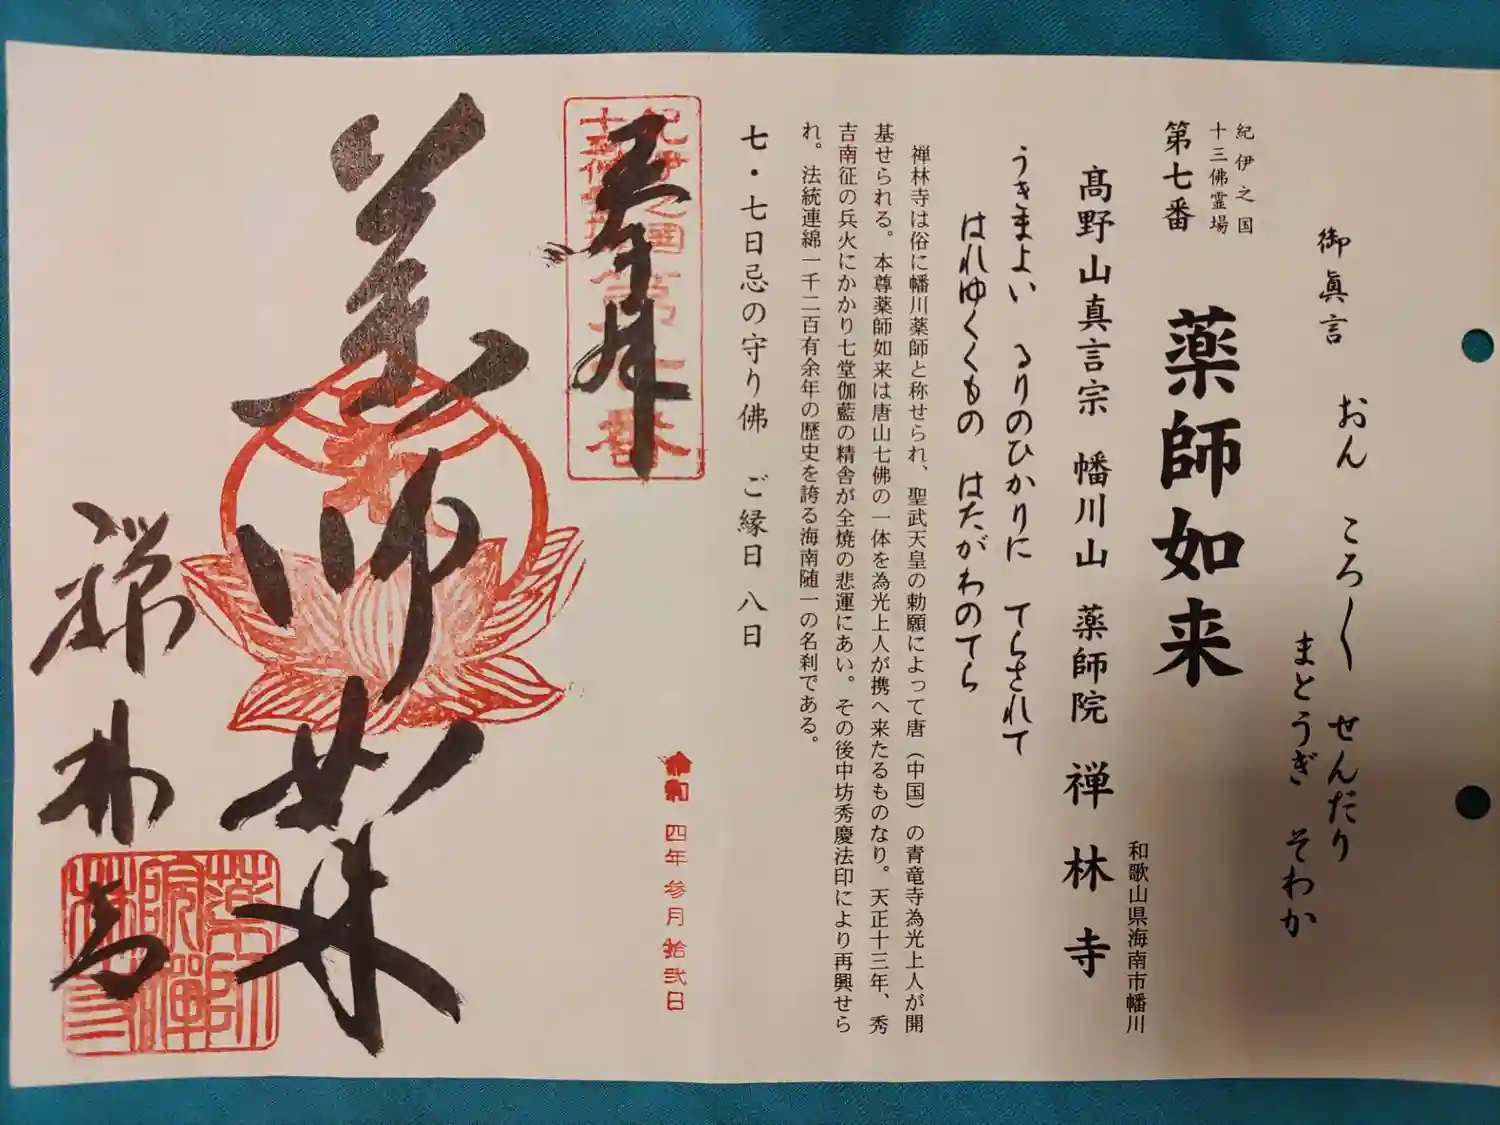 御眞言
おん ころ〳〵 せんだり
まとうぎ そわか
紀伊之国
十三佛霊場
第七番 薬師如来
和歌山県海南市幡川
髙野山真言宗 幡川山 薬師院 禅林寺
うきまよい るりのひかりに てらされて
はれゆくくもの はたがわのてら
禅林寺は俗に幡川薬師と称せられ、聖武天皇の勅願によって唐（中国）の青竜寺為光上人が開
基せられる。本尊薬師如来は唐山七佛の一体を為光上人が携へ来たるものなり。天正十三年、秀
吉南征の兵火にかかり七堂伽藍の精舎が全焼の悲運にあい。その後中坊秀慶法印により再興せら
れ。法統連綿一千二百有余年の歴史を誇る海南随一の名刹である。
七・七日忌の守り佛 ご縁日 八日
令和 四年参月拾弐日
紀伊之国
十三佛霊場
第七番
奉拝
薬師如来
禅林寺
薬師
院禅
林寺